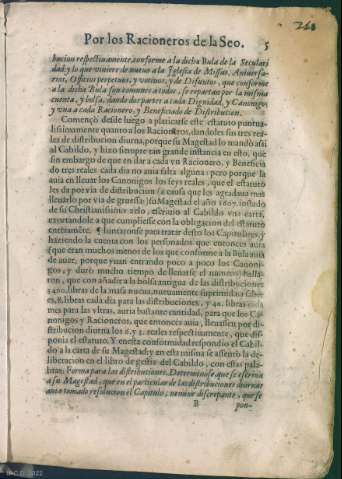 Por los Racioneros de la Seo. 5
bucion respectiuamente, conforme a la dicha Bula de la Seculari
dad: y lo que viniere de nueuo a la Iglesia de Missas, Aniuersa-
rios, Officios perpetuos, y votiuos, y de Difuntos, que conforme
a la dicha Bula son comunes a todos, se repartan por la misma
cuenta, y bolsa, dando dos partes a cada Dignidad, y Canonigo
y vna a cada Racionero, y Beneficiado de Distribucion.
Començò desde luego a platicarse este estatuto puntua-
lissimamente quanto a los Racioneros, dandoles sus tres rea-
les de distribucion diurna, porque su Magestad lo mandò assi
al Cabildo, y hizo siempre tan grande instancia en esto, que
sin embargo de que en dar a cada vn Racionero, y Beneficia
do tres reales cada dia no auia falta alguna: pero porque la
auia en lleuar los Canonigos los seys reales, que el estatuto
les da por via de distribucion (a causa que les agradaua mas
lleuarlo por via de gruessa) su Magestad el año 1607. instado
de su Christianissimo zelo, escriuio al Cabildo vna carta,
exortandole a que cumpliesse con la obligacion del estatuto
enteramẽte. ¶ Iuntaronse para tratar desto los Capitulares, y
haziendo la cuenta con los personados que entonces auia
(que eran muchos menos de los que conforme a la Bula auiã
de auer, porque yuan entrando poco a poco los Canoni-
gos, y durò mucho tiempo de llenarse el numero) halla-
ron, que con añadir a la bolsa antigua de las distribuciones
3400. libras de la masa
mes para las vltras, auria bastante cantidad, para que los Ca-
nonigos y Racioneros, que entonces auia, lleuassen por di-
stribucion diurna los 6. y 3. reales respectiuamente, que dis-
ponia el estatuto. Y en esta conformidad respondio el Cabil-
do a la carta de su Magestad; y en esta misma se assentò la de-
liberacion en el libro de gestis del Cabildo, con estas pala-
bras: Forma para las distribuciones. Determinose que se escriua
a su Magestad, que en el particular de las distribuciones diurnas
auia tomado resolucion el Capitulo, nemine discrepante, que se
B pon-